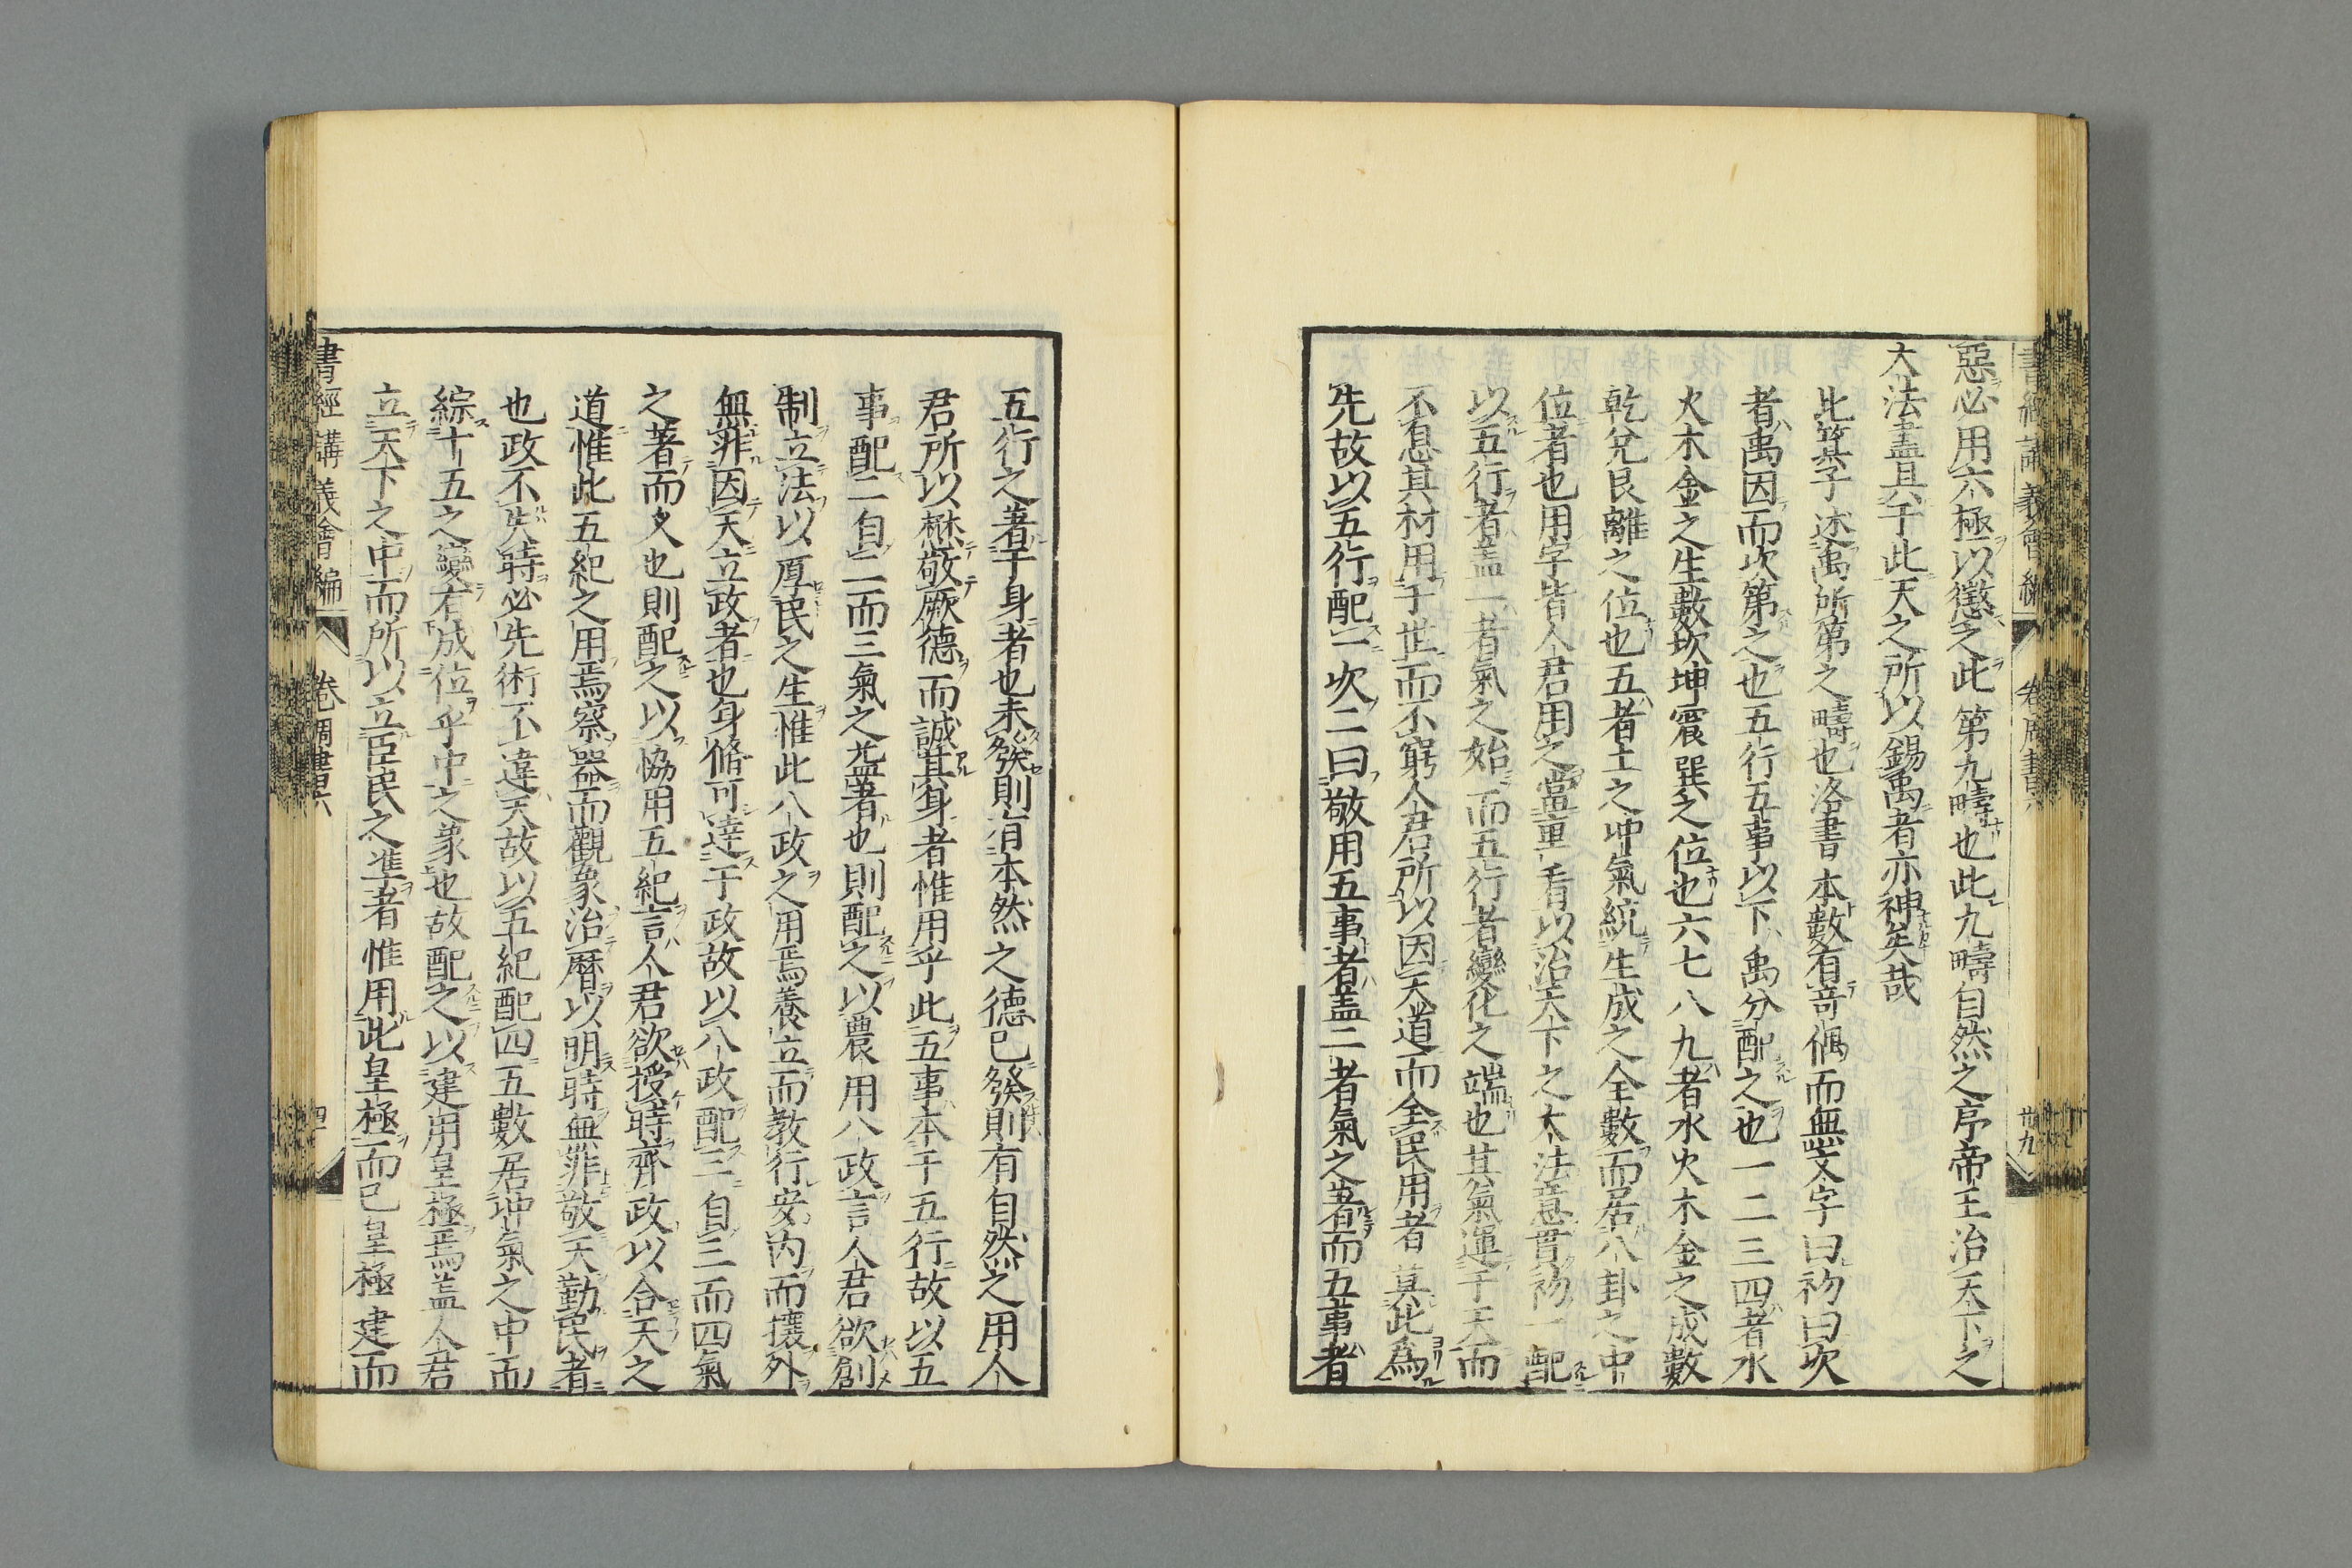 書經講義會編 卷周書六 廿九
惡必用六極以懲之此第九疇也此九疇自然之序帝王治天下之
大法盡具于此天之所以錫禹者亦神矣哉
此箕子述禹所第之疇也洛書本數有竒偶而無文字曰初曰次
者禹因而次第之也五行五事以下禹分配之也一二三四者水
火木金之生數坎坤震巽之位也六七八九者水火木金之成數
乾兌艮離之位也五者土之冲氣統生成之全數而居八卦之中
位者也用字皆人君用之當重看以治天下之大法意貫初一配
以五行者盖一者氣之始而五行者變化之端也其氣運于天而
不息其材用于世而不窮人君所以因天道而全民用者莫此爲
先故以五行配一次二曰敬用五事者盖二者氣之著而五事者
五行之著于身者也未發則有本然之德已發則有自然之用人
君所以懋敬厥德而誠其身者惟用乎此五事本于五行故以五
事配二自二而三氣之益著也則配之以農用八政言人君欲創
制立法以厚民之生惟此八政之用焉養立而教行安內而攘外
無非因天立政者也身脩可達于政故以八政配三自三而四氣
之著而乂也則配之以恊用五紀言人君欲授時齊政以合天之
道惟此五紀之用焉察器而觀象治曆以明時無非敬天勤民者
也政不失時必先術不違天故以五紀配四五數居冲氣之中而
綜十五之變有成位乎中之象也故配之以建用皇極焉盖人君
立天下之中而所以立臣民之準者惟用此皇極而已皇極建而
書經講義會編 卷周書六